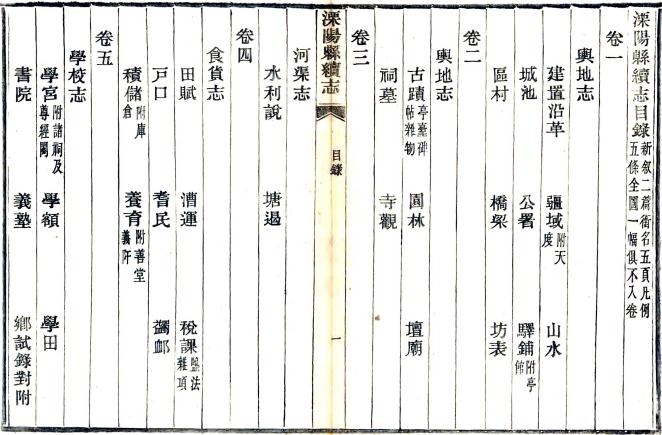 溧陽縣續志目錄 新敘二篇銜名五頁凡例五條全圖一幅俱不入卷
卷一
輿地志
建置沿革 疆域附天度 山水
城池 公署 驛鋪附亭館
區村 橋梁 坊表
卷二
輿地志
古蹟亭臺碑帖雜物 園林 壇廟
祠墓 寺觀
卷三
溧陽縣續志 目錄 一
河渠志
水利說 塘堨
卷四
食貨志
田賦 漕運 稅課鹽法雜項
戶口 耆民 蠲卹
積儲附庫倉 養育附善堂義阡
卷五
學校志
學宮附諸祠及尊經閣 學額 學田
書院 義塾 鄉試錄對附